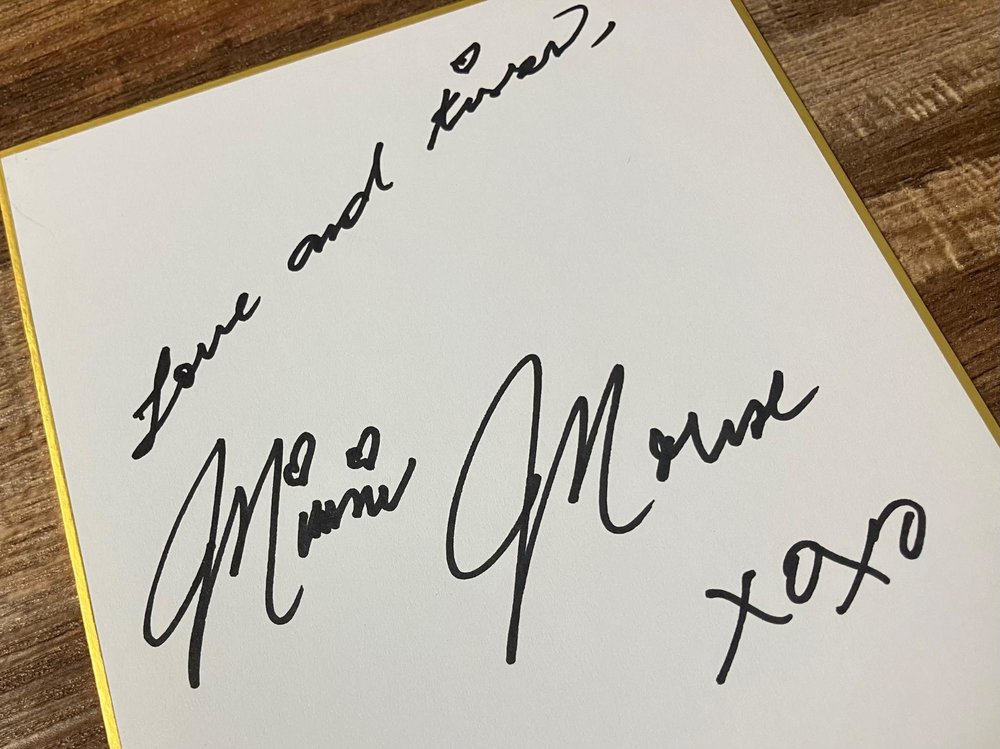 Love and kisses,
Minnie Mouse
XOXO